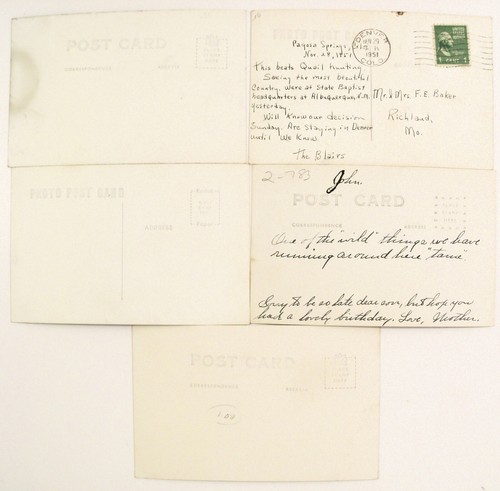 POST CARD
Pagosa Springs, Col
Nov. 28, 1951
This beats Quail hunting.
Seeing the most beautiful
Country. Were at State Baptist
headquarters at Albuquerque, N.M.
yesterday.
Will Know our decision
Sunday. Are staying in Denver
until we Know.
The Blairs
DENVER
1951
COLO
1 CENT
Mr. & Mrs. F. E. Baker
Richland,
Mo.
PHOTO POST CARD
ADDRESS
2-783
John.
POST CARD
CORRESPONDENCE
One of the "wild" things we have
running around here "tame".
Sorry to be so late dear son, but hop you
had a lovely birthday. Love, Mother.
POST CARD
CORRESPONDENCE
ADDRESS
100